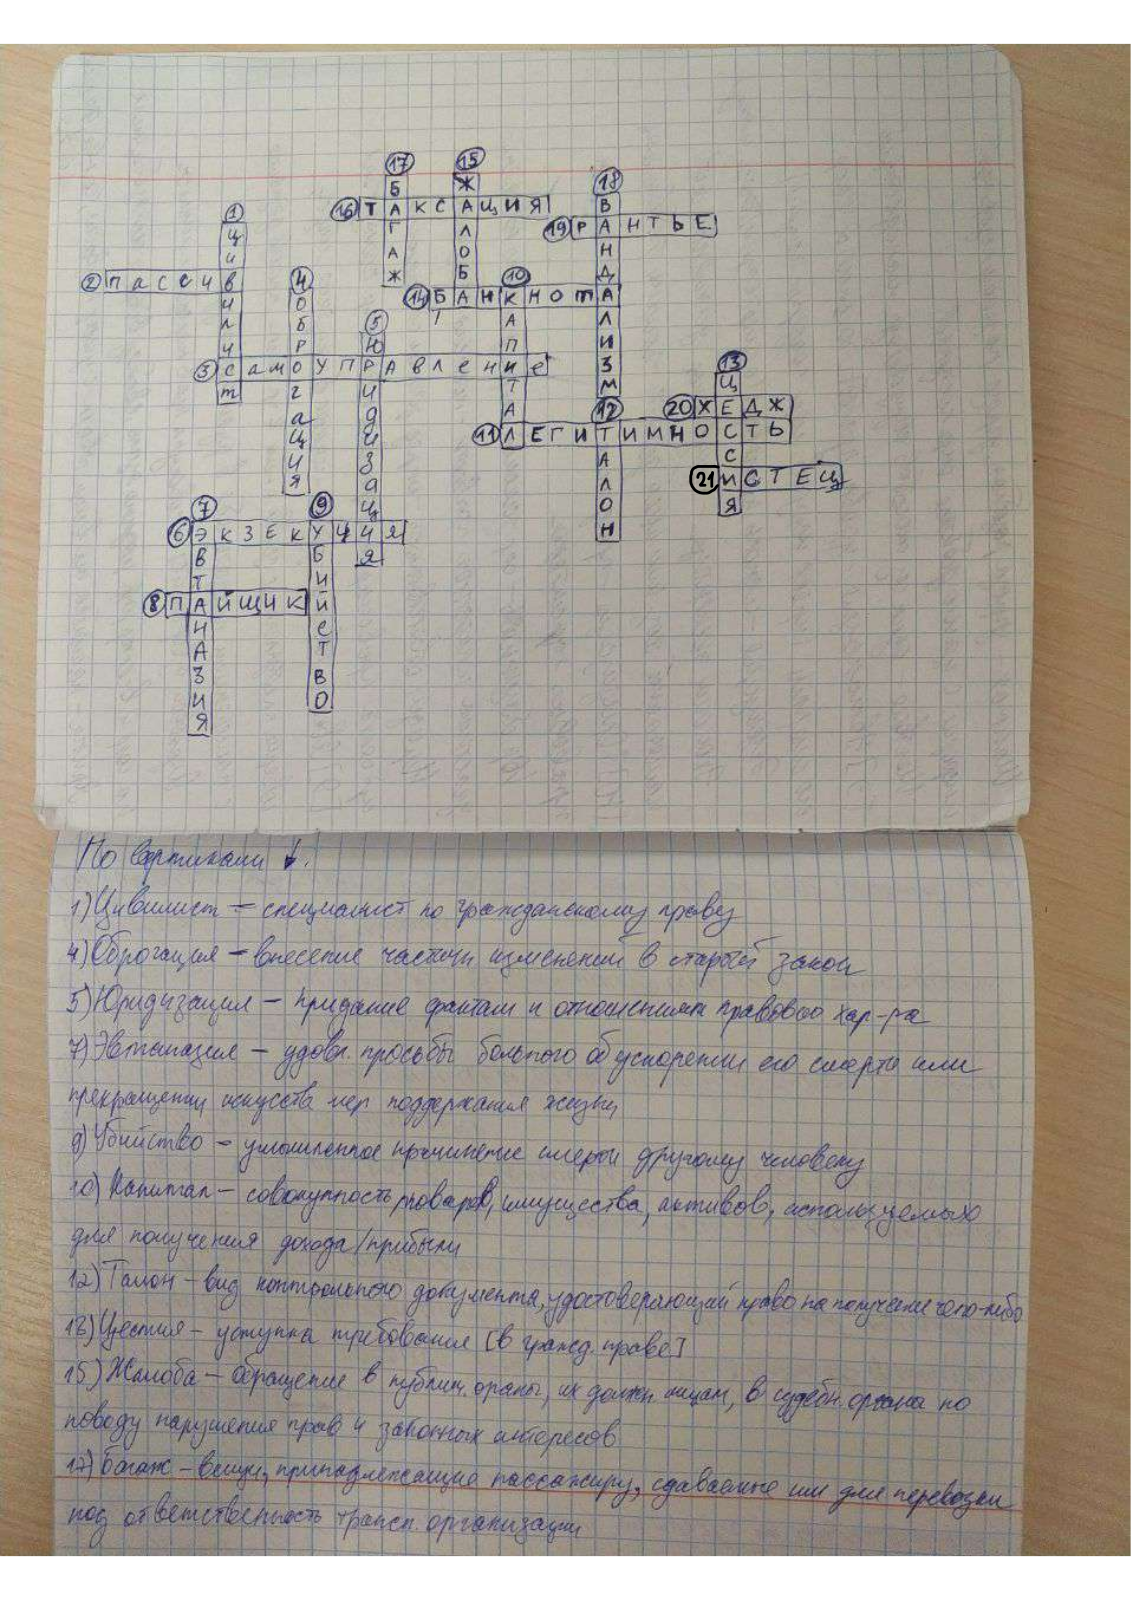 17 БАГАЖ
15 ЖАЛОБА
18 ВАНДАЛИЗМ
16 ТАКСАЦИЯ
1 ЦИВИЛИСТ
19 РАНТЬЕ
2 ПАССИВ
4 ОБРОГАЦИЯ
10 КАПИТАЛ
14 БАНКНОТА
5 ЮРИДИЗАЦИЯ
3 САМОУПРАВЛЕНИЕ
13 ЦЕССИЯ
12 ТАЛОН
20 ХЕДЖ
11 ЛЕГИТИМНОСТЬ
21 ИСТЕЦ
7 ЭВТАНАЗИЯ
9 УБИЙСТВО
6 ЭКЗЕКУЦИЯ
8 ПАЙЩИК
По вертикали ↓.
1) Цивилист – специалист по гражданскому праву
4) Оброгация – внесение частичн изменений в старый закон
5) Юридизация – придание фактам и отношениям правового хар-ра
7) Эвтаназия – удовл. просьбы больного об ускорении его смерти или
прекращении искусств мер поддержания жизни
9) Убийство – умышленное причинение смерти другому человеку
10) Капитал – совокупность товаров, имущества, активов, используемых
для получения дохода/прибыли
12) Талон – вид контрольного документа, удостоверяющий право на получение чего-либо
13) Цессия – уступка требования [в гражд. праве]
15) Жалоба – обращение в публичн. органы, их должн лицам, в судебн. органа по
поводу нарушения прав и законных интересов
17) Багаж – вещи, принадлежащие пассажиру, сдаваемые им для перевозки
под ответственность трансп. организации